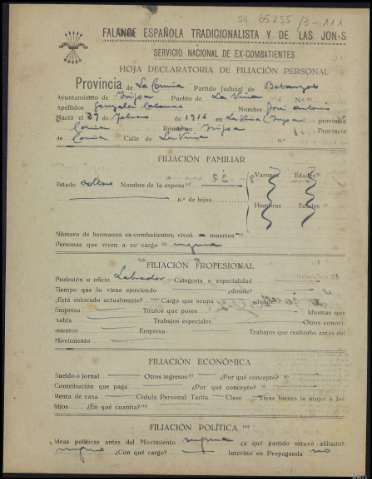 FALANGE ESPAÑOLA TRADICIONALISTA Y DE LAS JON-S
SERVICIO NACIONAL DE EX-COMBATIENTES
HOJA DECLARATORIA DE FILIACIÓN PERSONAL
Provincia de La Coruña Partido judicial de Betanzos
Ayuntamiento de Irijoa Pueblo de La Viña
Apellidos González Nombre José Antonio
Nació el 27 de Febrero de 1916 en La Viña Irijoa provincia
Coruña Irijoa Provincia
de Coruña Calle de La Viña
FILIACIÓN FAMILIAR
Estado soltero Nombre de la esposa Varones Edades
N.º de hijos Hembras Edades
Número de hermanos ex-combatientes, vivos muertos
Personas que viven a su cargo ninguna
FILIACIÓN PROFESIONAL
Profesión u oficio Labrador Categoría o especialidad
Tiempo que lo viene ejerciendo ¿dónde?
¿Está colocado actualmente? Cargo que ocupa
Empresa Títulos que posee Idiomas que
habla Trabajos especiales Otros conoci-
mientos Empresa Trabajos que realizaba antes del
Movimiento
FILIACIÓN ECONÓMICA
Sueldo o jornal Otros ingresos ¿Por qué concepto?
Contribución que paga ¿Por qué concepto?
Renta de casa Cédula Personal Tarifa Clase
hijos ¿En qué cuantía?
FILIACIÓN POLÍTICA
Ideas políticas antes del Movimiento ninguna ¿a qué partido estuvo afiliado?
ninguno ¿Con qué cargo? Intervino en Propaganda no